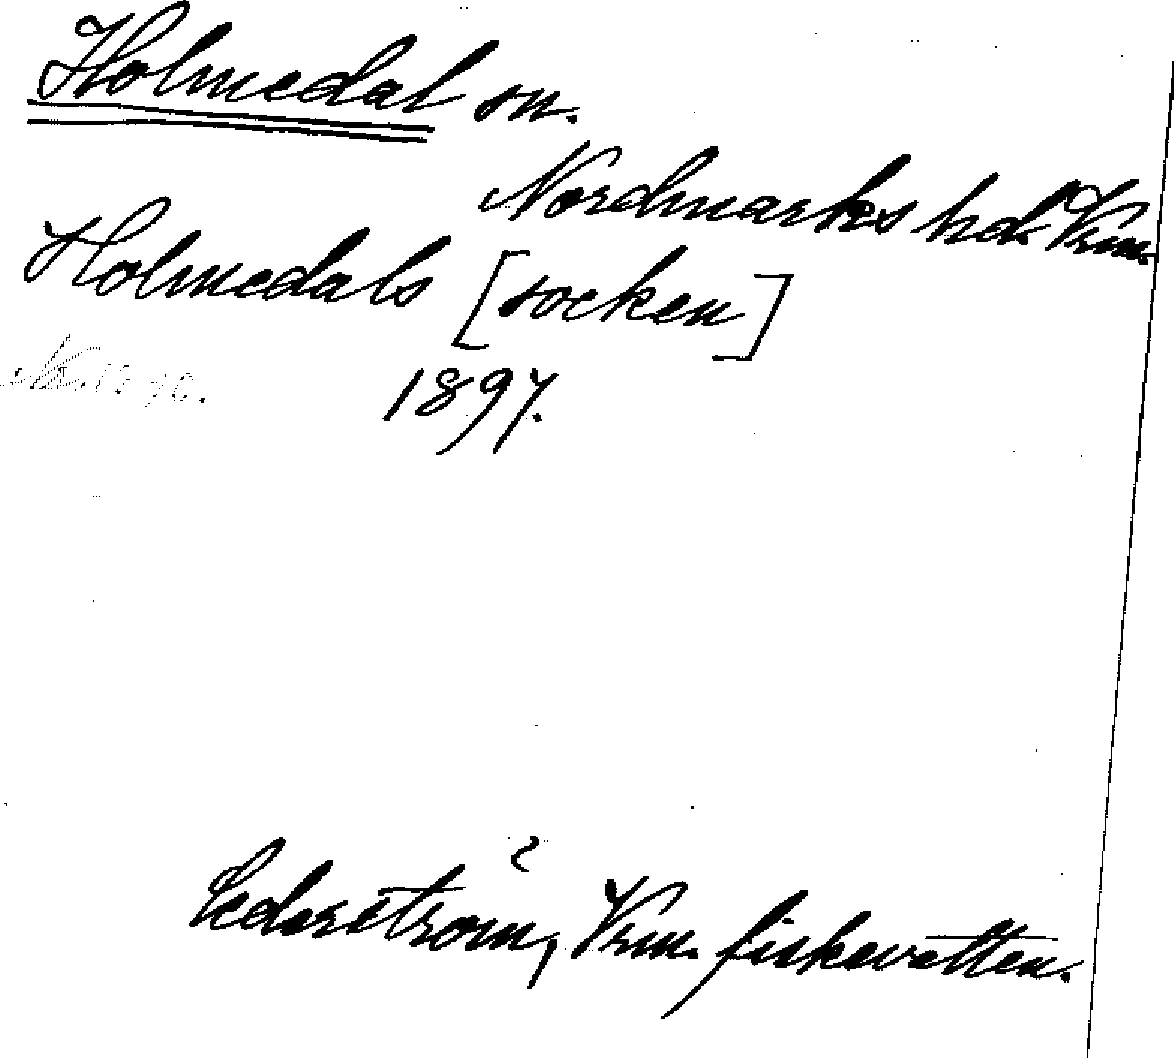 Holmedal sn.
Nordmarks hd. Vrm.
Holmedals [socken]
1897.
Cederström, Vrm. fiskevatten.